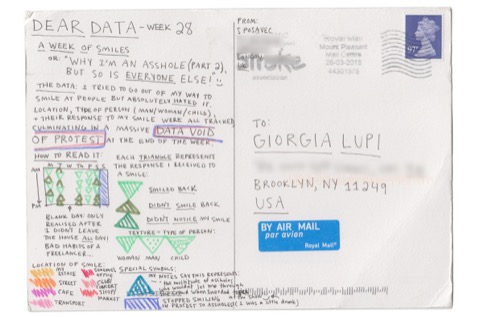 DEAR DATA - WEEK 28
A WEEK OF SMILES
OR: "WHY I'M AN ASSHOLE (PART 2),
BUT SO IS EVERYONE ELSE!"
THE DATA: I TRIED TO GO OUT OF MY WAY TO
SMILE AT PEOPLE BUT ABSOLUTELY HATED IT.
LOCATION, TYPE OF PERSON (MAN/WOMAN/CHILD),
+ THEIR RESPONSE TO MY SMILE WERE ALL TRACKED,
CULMINATING IN A MASSIVE DATA VOID
OF PROTEST AT THE END OF THE WEEK.
HOW TO READ IT:
M T W TH F S S
AM
PM
BLANK DAY ONLY
REALISED AFTER
I DIDN'T LEAVE
THE HOUSE ALL DAY!
BAD HABITS OF A
FREELANCER...
EACH TRIANGLE REPRESENTS
THE RESPONSE I RECEIVED TO
A SMILE:
SMILED BACK
DIDN'T SMILE BACK
DIDN'T NOTICE MY SMILE
TEXTURE = TYPE OF PERSON:
WOMAN MAN CHILD
LOCATION OF SMILE:
MY
STREET
CAFE
TRANSPORT
OFFICE
CLUB
SHOP/
MARKET
SPECIAL SYMBOLS:
MY NOTES SAY THIS REPRESENTS:
STOPPED SMILING
IN PROTEST TO ASSHOLES (I WAS A LITTLE DRUNK)
FROM:
S POSAVEC
Royal Mail
Mount Pleasant
Mail Centre
26-03-2015
44301975
TO:
GIORGIA LUPI
BROOKLYN, NY 11249
USA
BY AIR MAIL
par avion
Royal Mail